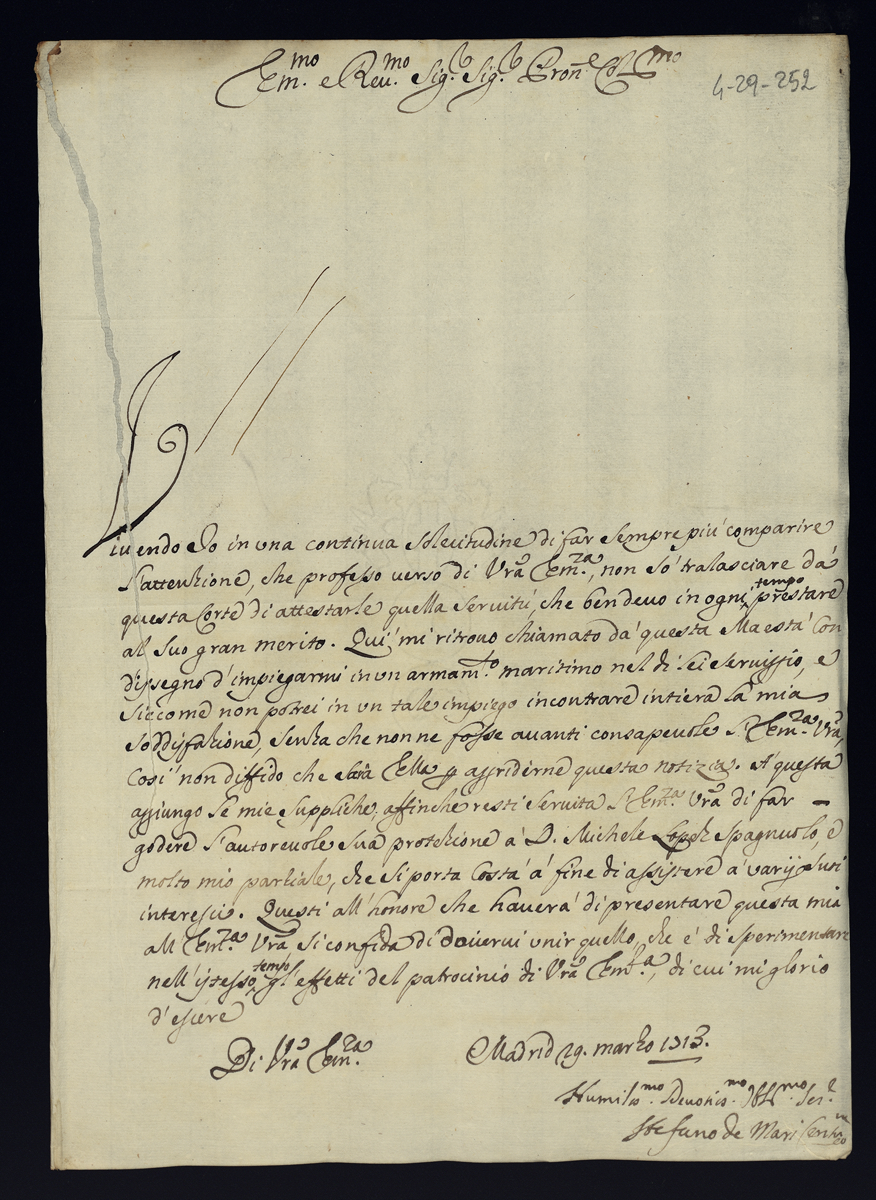 Em.mo e Reu.mo Sig.r Sig.r Pron.e Col.mo
4-29-252
Viuendo Io in una continua solecitudine di far sempre più comparire
l'attenzione, che professo verso di Vra Em.za, non sò tralasciare dà
questa Corte di attestarle quella seruitù, che ben deuo in ogni tempo prestare
al suo gran merito. Quì mi ritrouo chiamato dà questa Maestà con
dissegno d'impiegarmi in un armam.to maritimo nel di lei seruissio, e
siccome non potrei in un tale impiego incontrare intiera la mia
soddisfazione, senza che non ne fosse auanti consapeuole l'Em.za Vra,
Così non diffido che sarà Ella p aggradirne questa notizia. A' questa
aggiungo le mie suppliche, affinche resti seruita l'Em.za Vra di far
godere l'autoreuole sua protezione à D. Michele Lopez spagnuolo, e
molto mio parziale, che si porta costà à fine di assistere à varij suoi
interessi. Questi all'honore che hauerà di presentare questa mia
all'Em.za Vra si confida di douerui unir quello, che è di sperimentare
nell'istesso tempo gl'effetti del patrocinio di Vra Em.za, di cui mi glorio
d'essere
Di Vra Em.za
Madrid 29. marzo 1713.
Humiliss.mo Deuotiss.mo Obl.mo Ser.e
Stefano de Mari